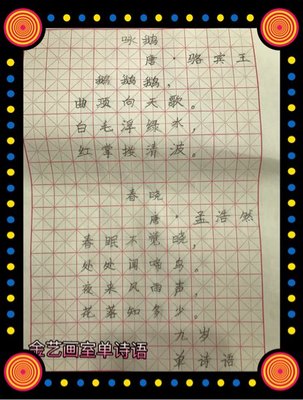 咏鹅
唐·骆宾王
鹅鹅鹅，
曲项向天歌。
白毛浮绿水，
红掌拨清波。
春晓
唐·孟浩然
春眠不觉晓，
处处闻啼鸟。
夜来风雨声，
花落知多少。
九岁
单诗语
金艺画室单诗语